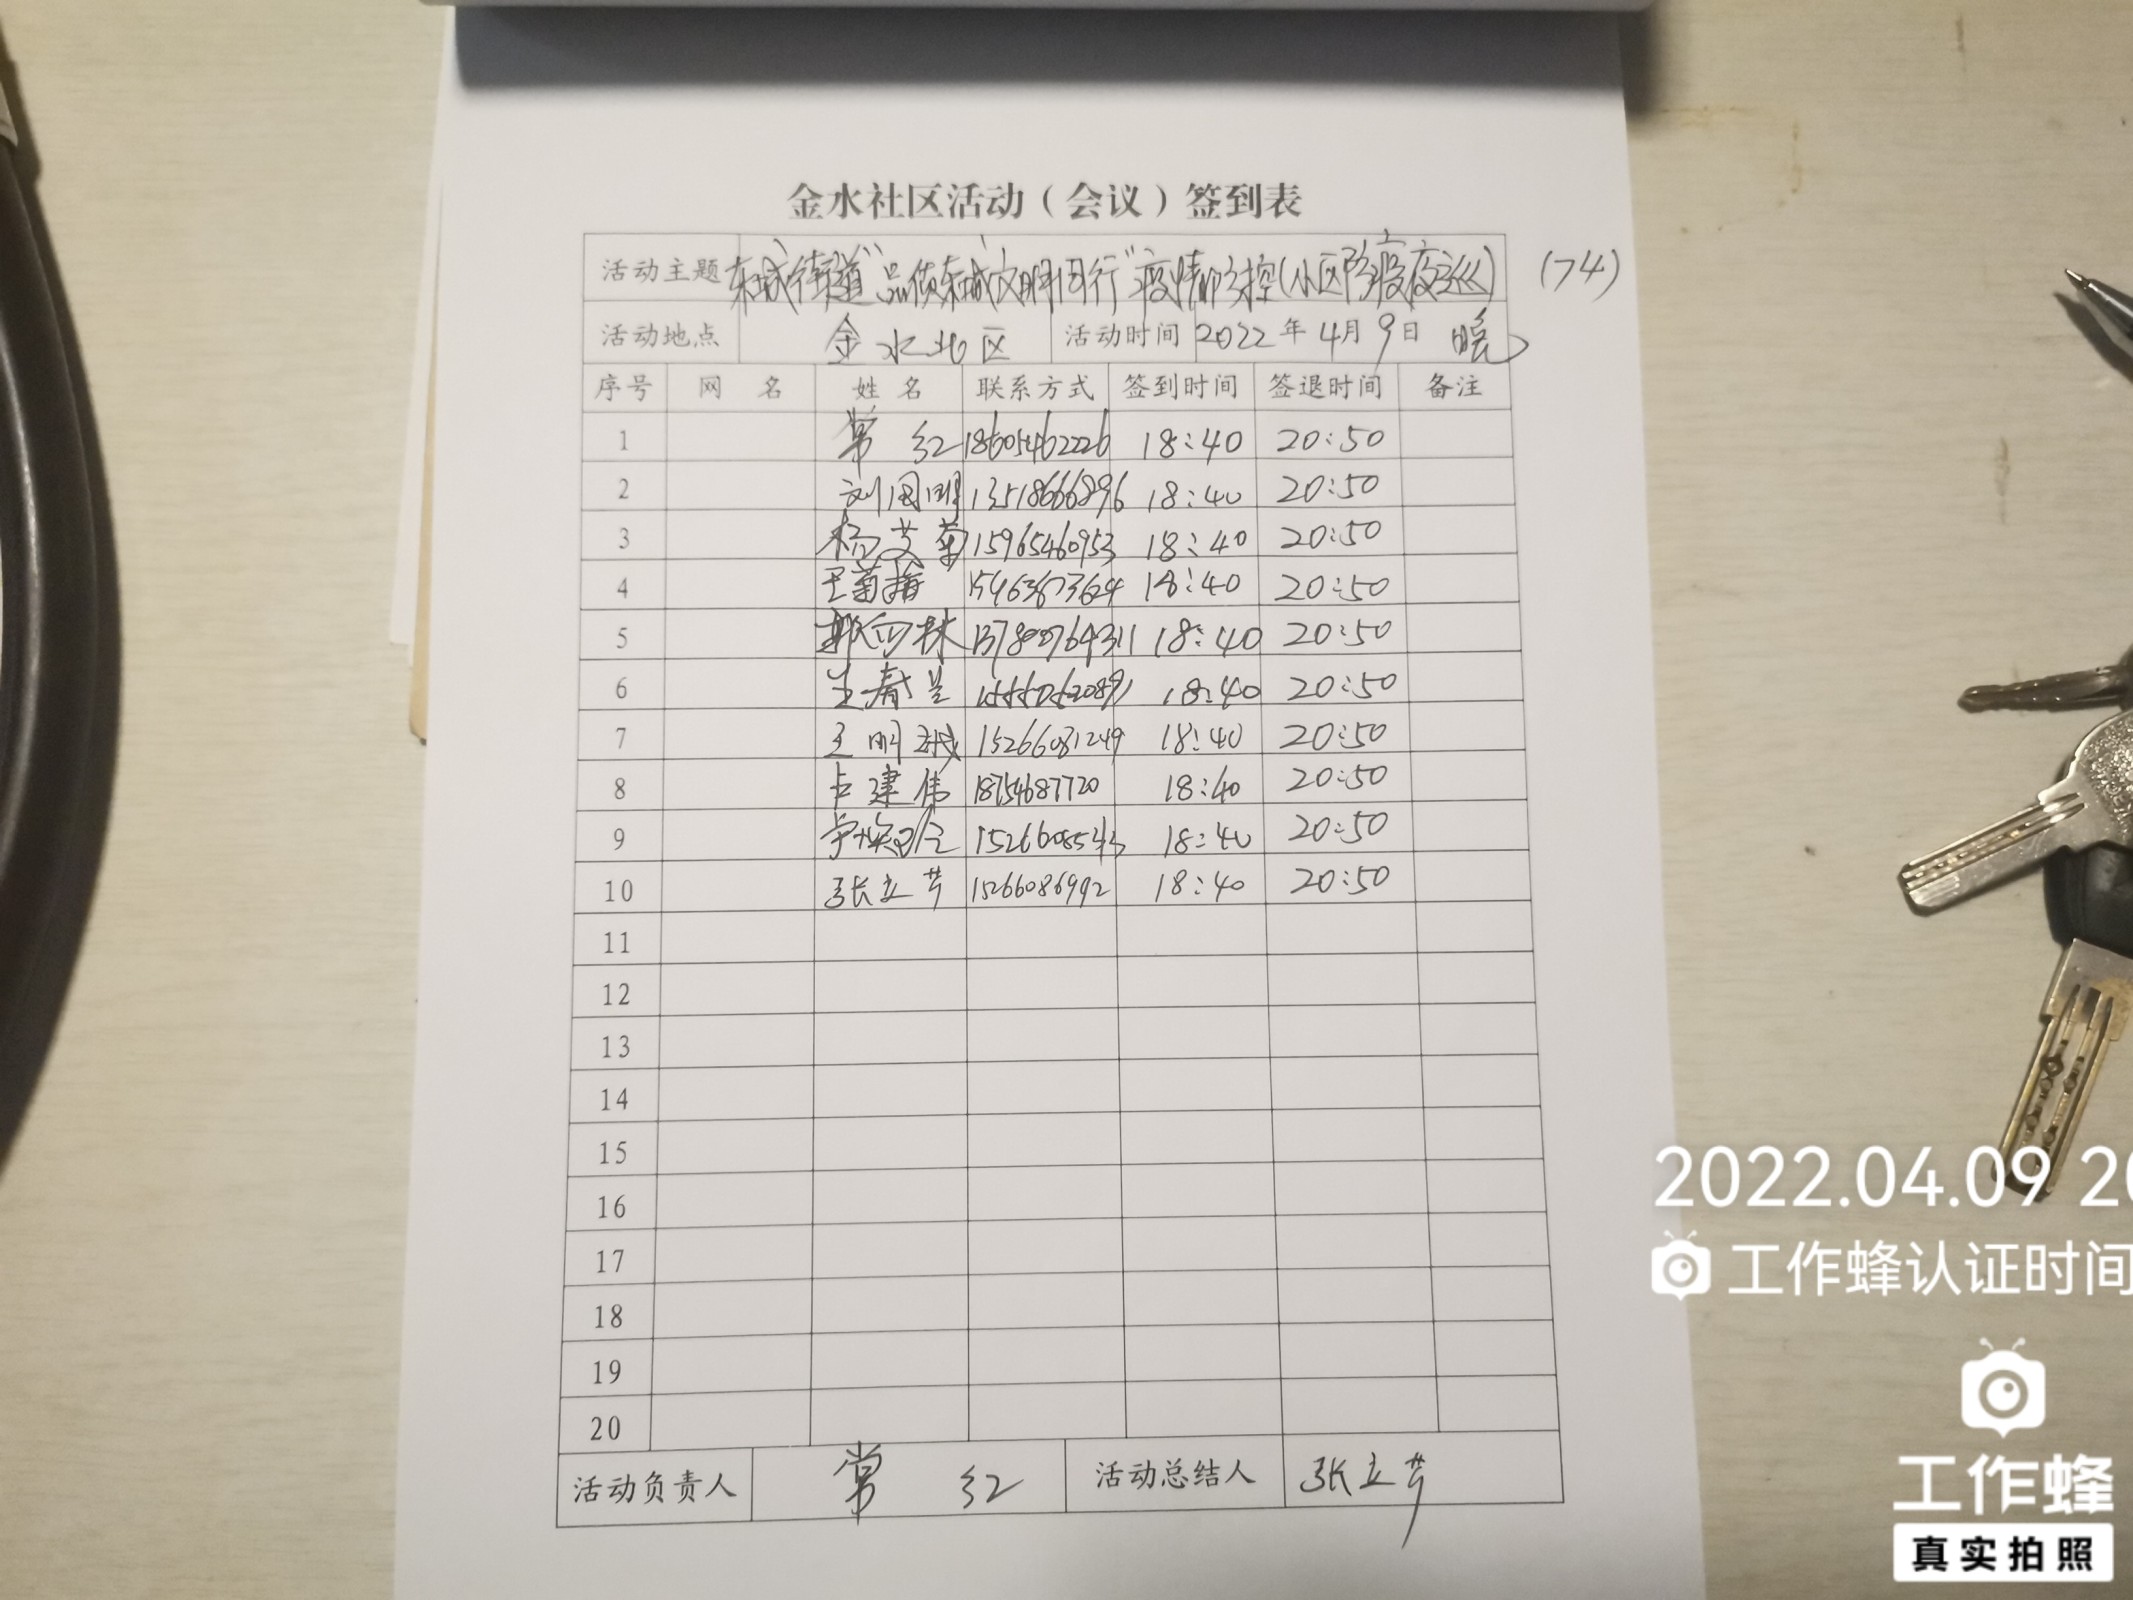 金水社区活动（会议）签到表
活动主题 东城街道"品质东城文明同行"疫情防控(小区防疫夜巡) (74)
活动地点 金水北区 活动时间 2022年4月9日 晚
序号 网 名 姓 名 联系方式 签到时间 签退时间 备注
1 常 红 18605462226 18:40 20:50
2 刘国明 13518666896 18:40 20:50
3 杨艾菊 15965460953 18:40 20:50
4 王菊梅 18:40 20:50
5 18:40 20:50
6 18:40 20:50
7 王明 15266081249 18:40 20:50
8 卢建伟 18754687720 18:40 20:50
9 18:40 20:50
10 张立芹 15266086992 18:40 20:50
11
12
13
14
15
16
17
18
19
20
活动负责人 常 红 活动总结人 张立芹
2022.04.09 20
工作蜂认证时间
工作蜂
真实拍照